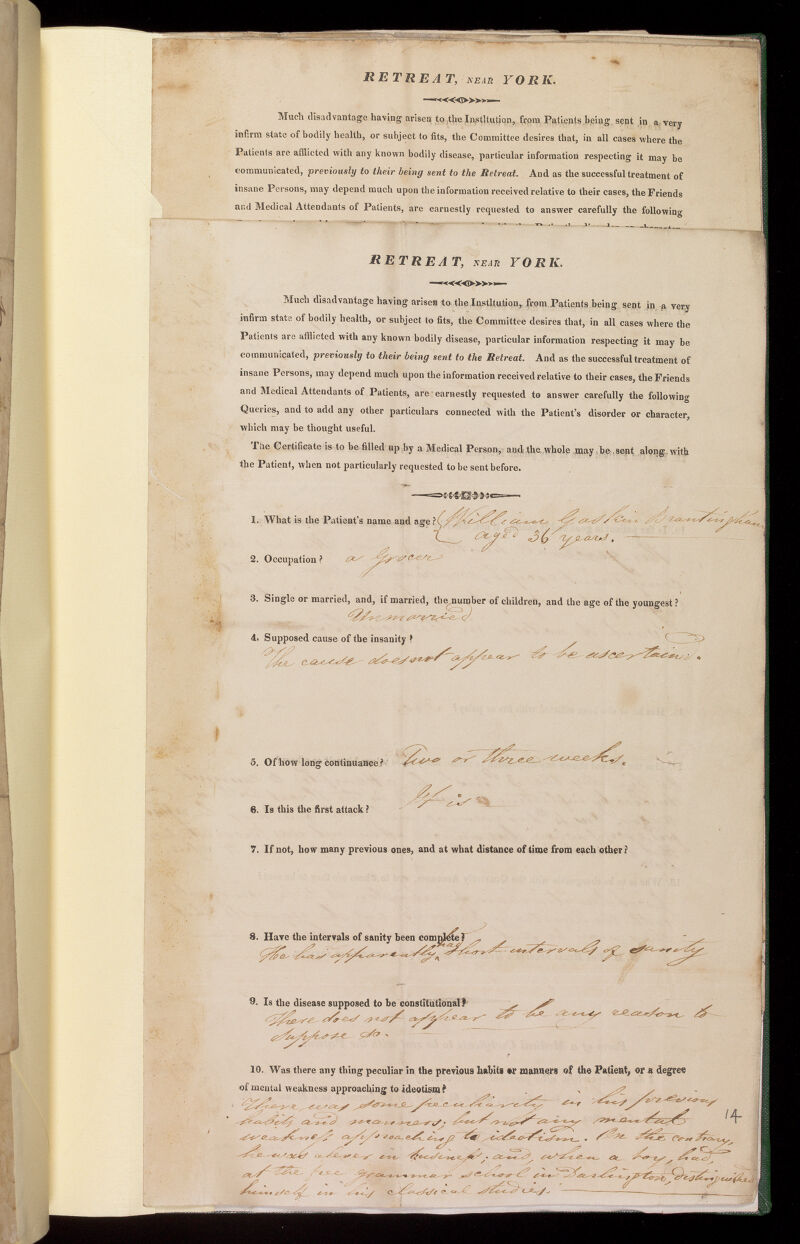 RETREAT, NEAR YORK.
Much disadvantage having arisen to the Institution, from Patients being sent in a very
infirm state of bodily health, or subject to fits, the Committee desires that, in all cases where the
Patients are afflicted with any known bodily disease, particular information respecting it may be
communicated, previously to their being sent to the Retreat. And as the successful treatment of
insane Persons, may depend much upon the information received relative to their cases, the Friends
and Medical Attendants of Patients, are earnestly requested to answer carefully the following
RETREAT, NEAR YORK.
Much disadvantage having arisen to the Institution, from Patients being sent in a very
infirm state of bodily health, or subject to fits, the Committee desires that, in all cases where the
Patients are afflicted with any known bodily disease, particular information respecting it may be
communicated, previously to their being sent to the Retreat. And as the successful treatment of
insane Persons, may depend much upon the information received relative to their cases, the Friends
and Medical Attendants of Patients, are earnestly requested to answer carefully the following
Queries, and to add any other particulars connected with the Patient's disorder or character,
which may be thought useful.
The Certificate is to be filled up by a Medical Person, and the whole may be sent along with
the Patient, when not particularly requested to be sent before.
1. What is the Patient's name and age? William Gaskin Brantingham
aged 36 years.
2. Occupation? a Grocer
3. Single or married, and, if married, the number of children, and the age of the youngest?
Unmarried
4. Supposed cause of the insanity?
The cause does not appear to be ascertain.
5. Of how long continuance? Two or three weeks.
6. Is this the first attack? It is
7. If not, how many previous ones, and at what distance of time from each other?
8. Have the intervals of sanity been complete?
He has apparently had short intervals of sanity
9. Is the disease supposed to be constitutional?
There does not appear to be any reason to
suppose so.
10. Was there any thing peculiar in the previous habits or manners of the Patient, or a degree
of mental weakness approaching to ideotism?
There was some peculiarity in his previous
habits and manners; but not any mental
14
weakness approaching to ideotism. On the contrary,
he was clever in business; and, when a boy, had,
at the free grammar school in Darlington, distinguished
himself in his classical studies.